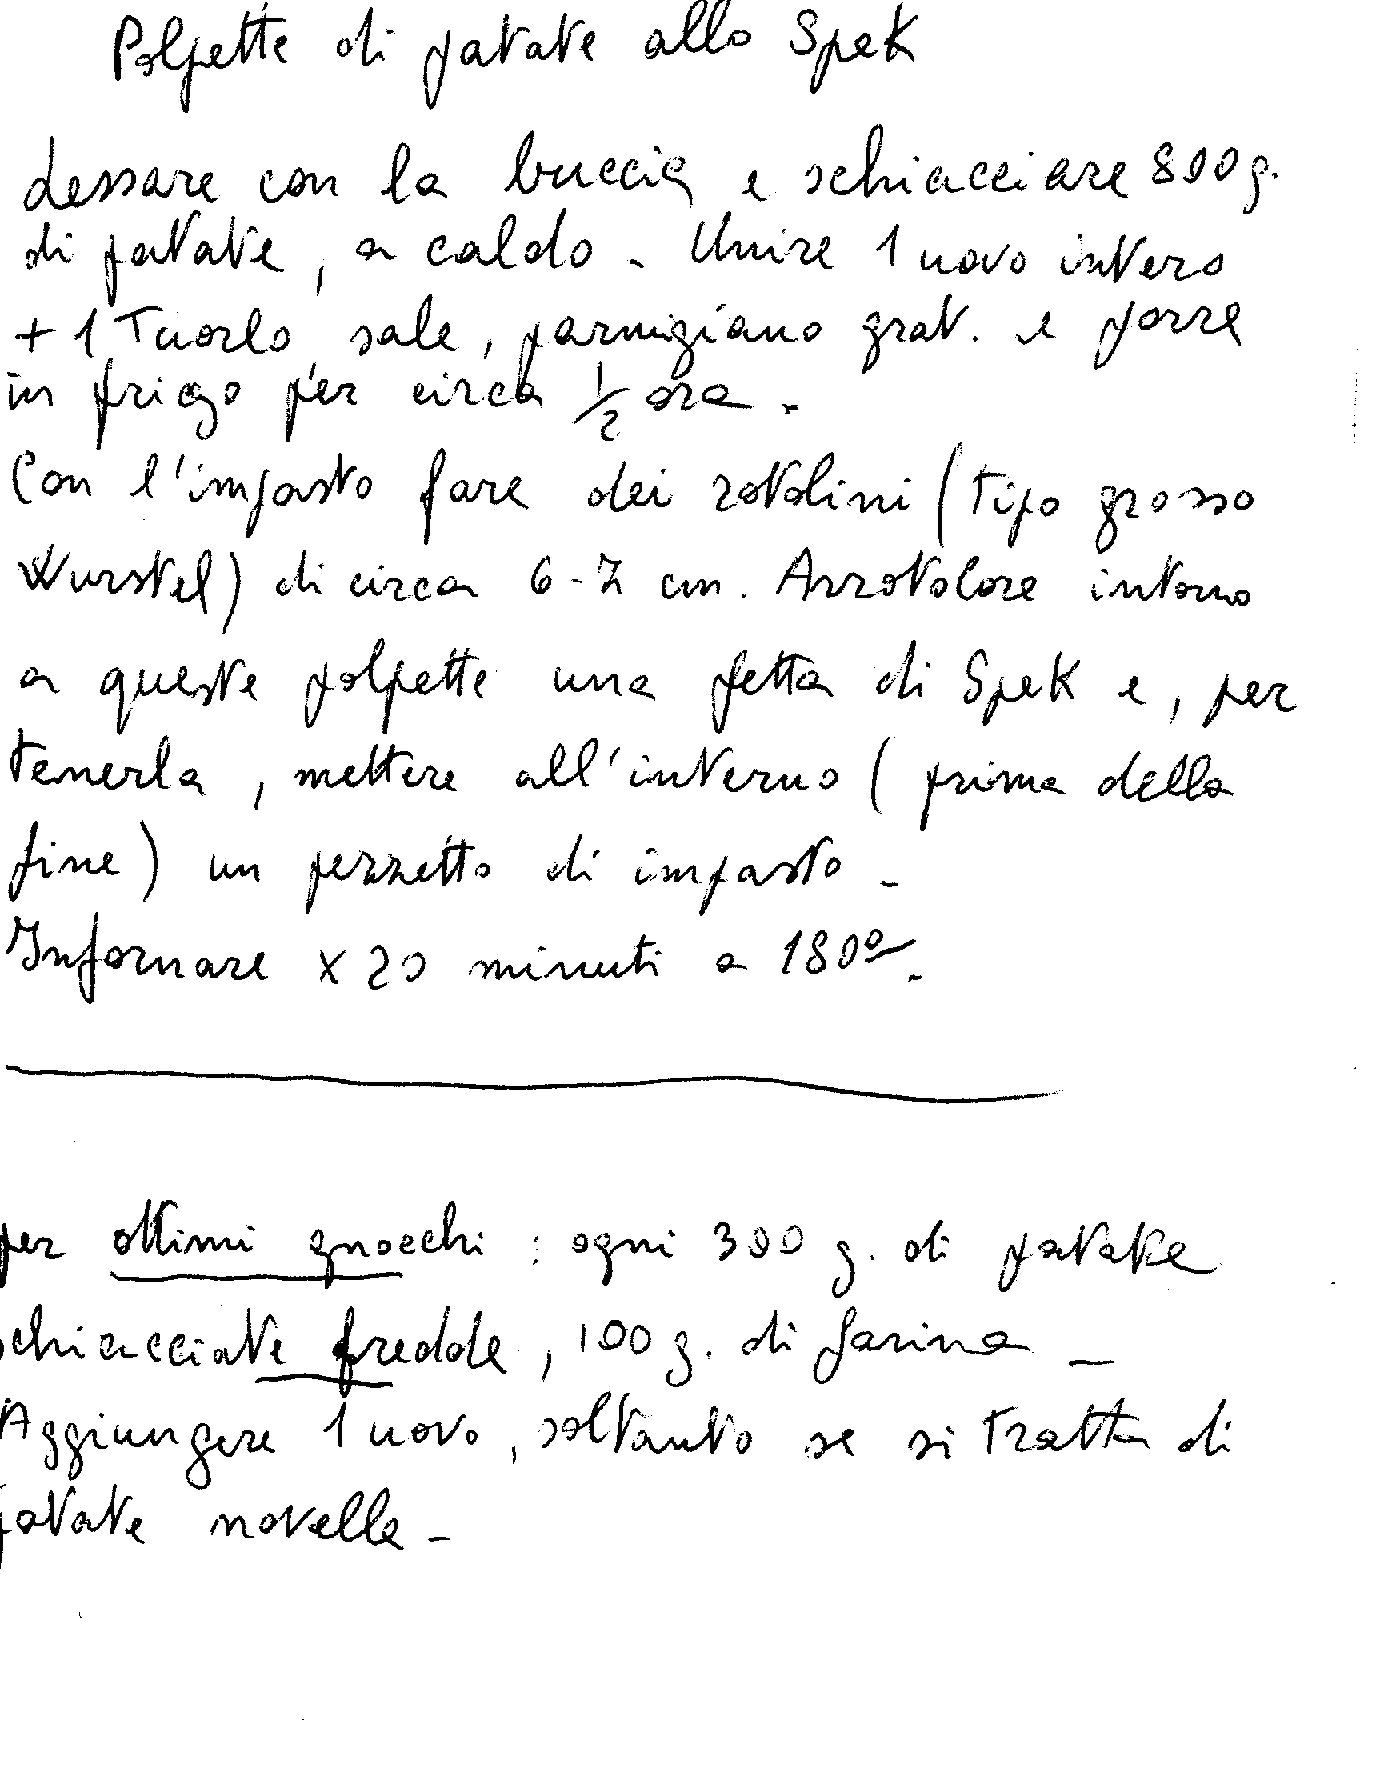 Polpette di patate allo Spek
lessare con la buccia e schiacciare 800 g.
di patate, a caldo - Unire 1 uovo intero
+ 1 Tuorlo, sale, parmigiano grat. e porre
in frigo per circa 1/2 ora -
Con l'impasto fare dei rotolini (tipo grosso
Wurstel) di circa 6-7 cm. Arrotolare intorno
a queste polpette una fetta di Spek e, per
tenerla, mettere all'interno (prima della
fine) un pezzetto di impasto -
Infornare x 20 minuti a 180° -
per ottimi gnocchi : ogni 300 g. di patate
schiacciate fredde, 100 g. di farina -
Aggiungere 1 uovo, soltanto se si tratta di
patate novelle -